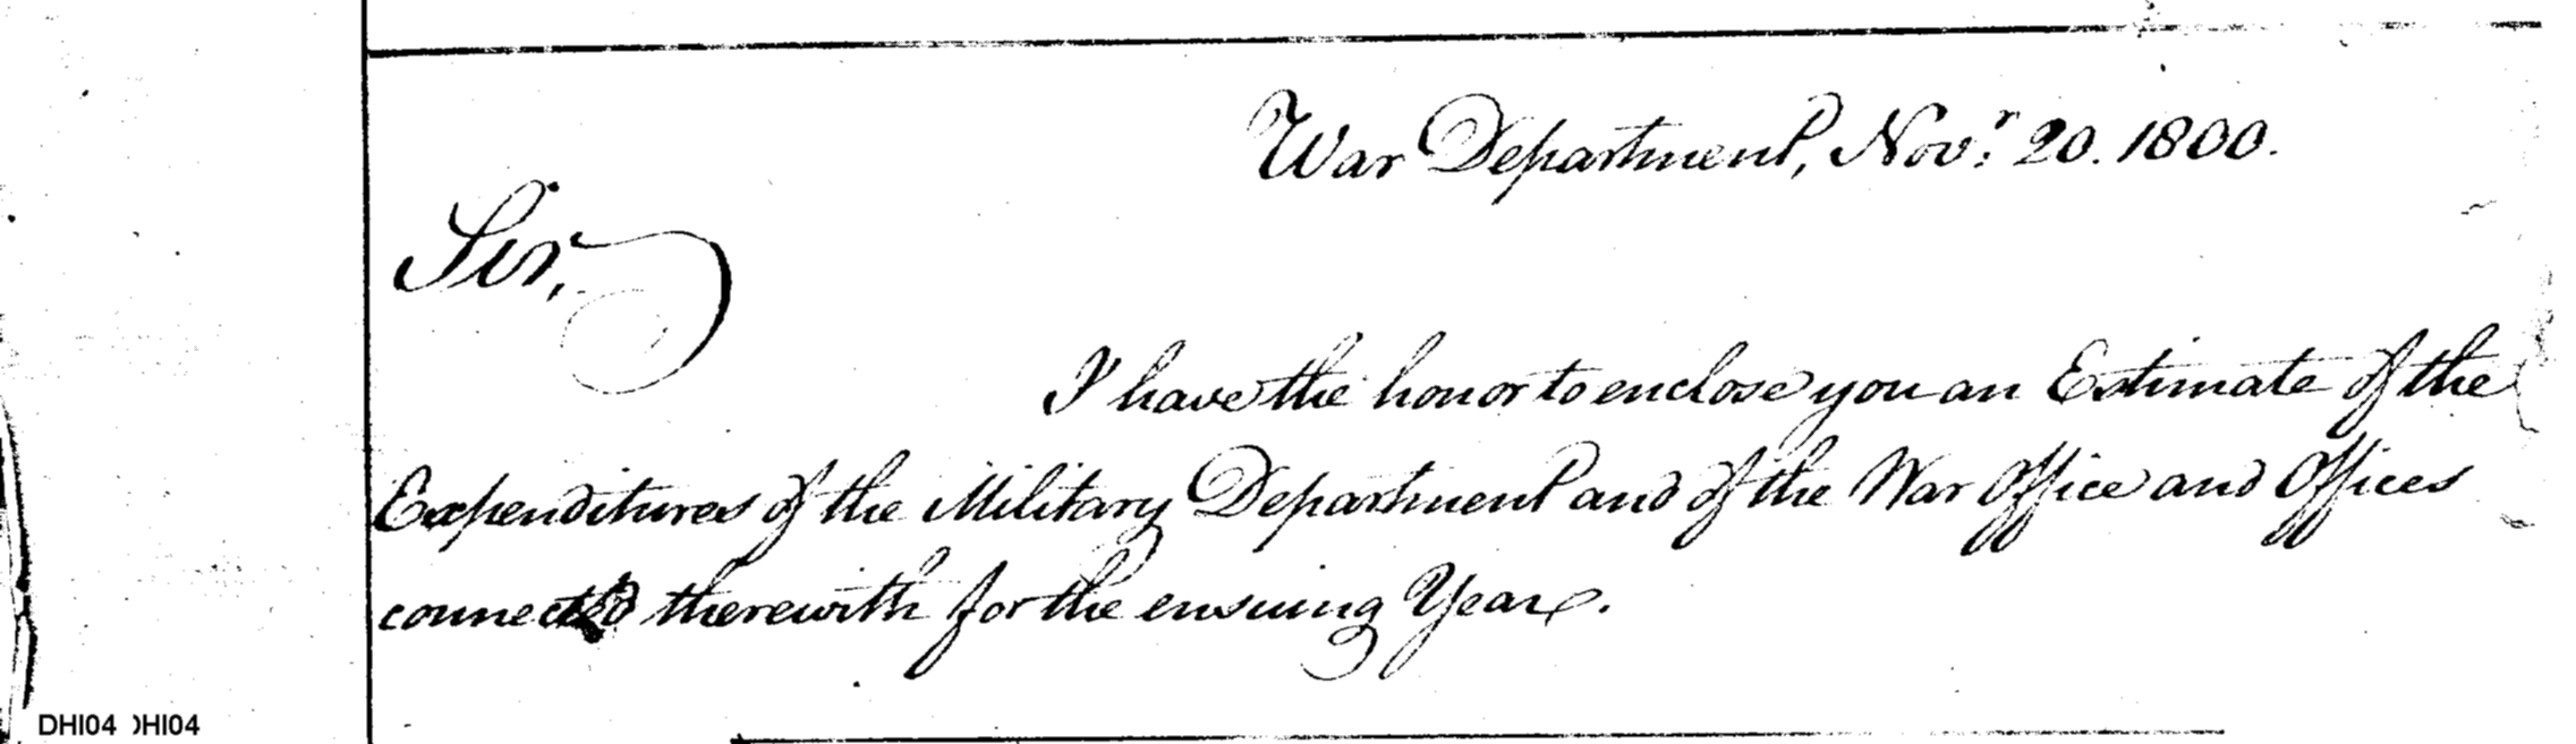 War Department, Novr. 20. 1800.
Sir,
I have the honor to enclose you an Estimate of the
Expenditures of the Military Department and of the War Office and Offices
connected therewith for the ensuing Year.
DHI04 DHI04